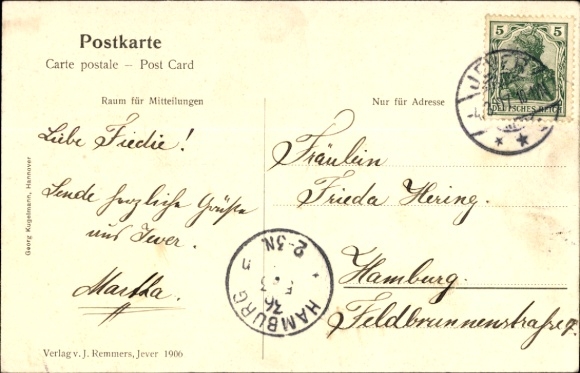 Postkarte
Carte postale – Post Card
Raum für Mitteilungen
Nur für Adresse
Liebe Fiedie!
Sende herzliche Grüße
aus Jever.
Martha.
Fräulein
Frieda Hering.
Hamburg.
Feldbrunnenstraße
5 5
DEUTSCHES REICH
JEVER
HAMBURG
36
2-3N
Georg Kugelmann, Hannover
Verlag v. J. Remmers, Jever 1906